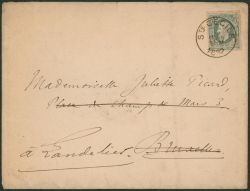 Mademoiselle Juliette Picard,
Place du Champ de Mars 3
à Landelies. Bruxelles